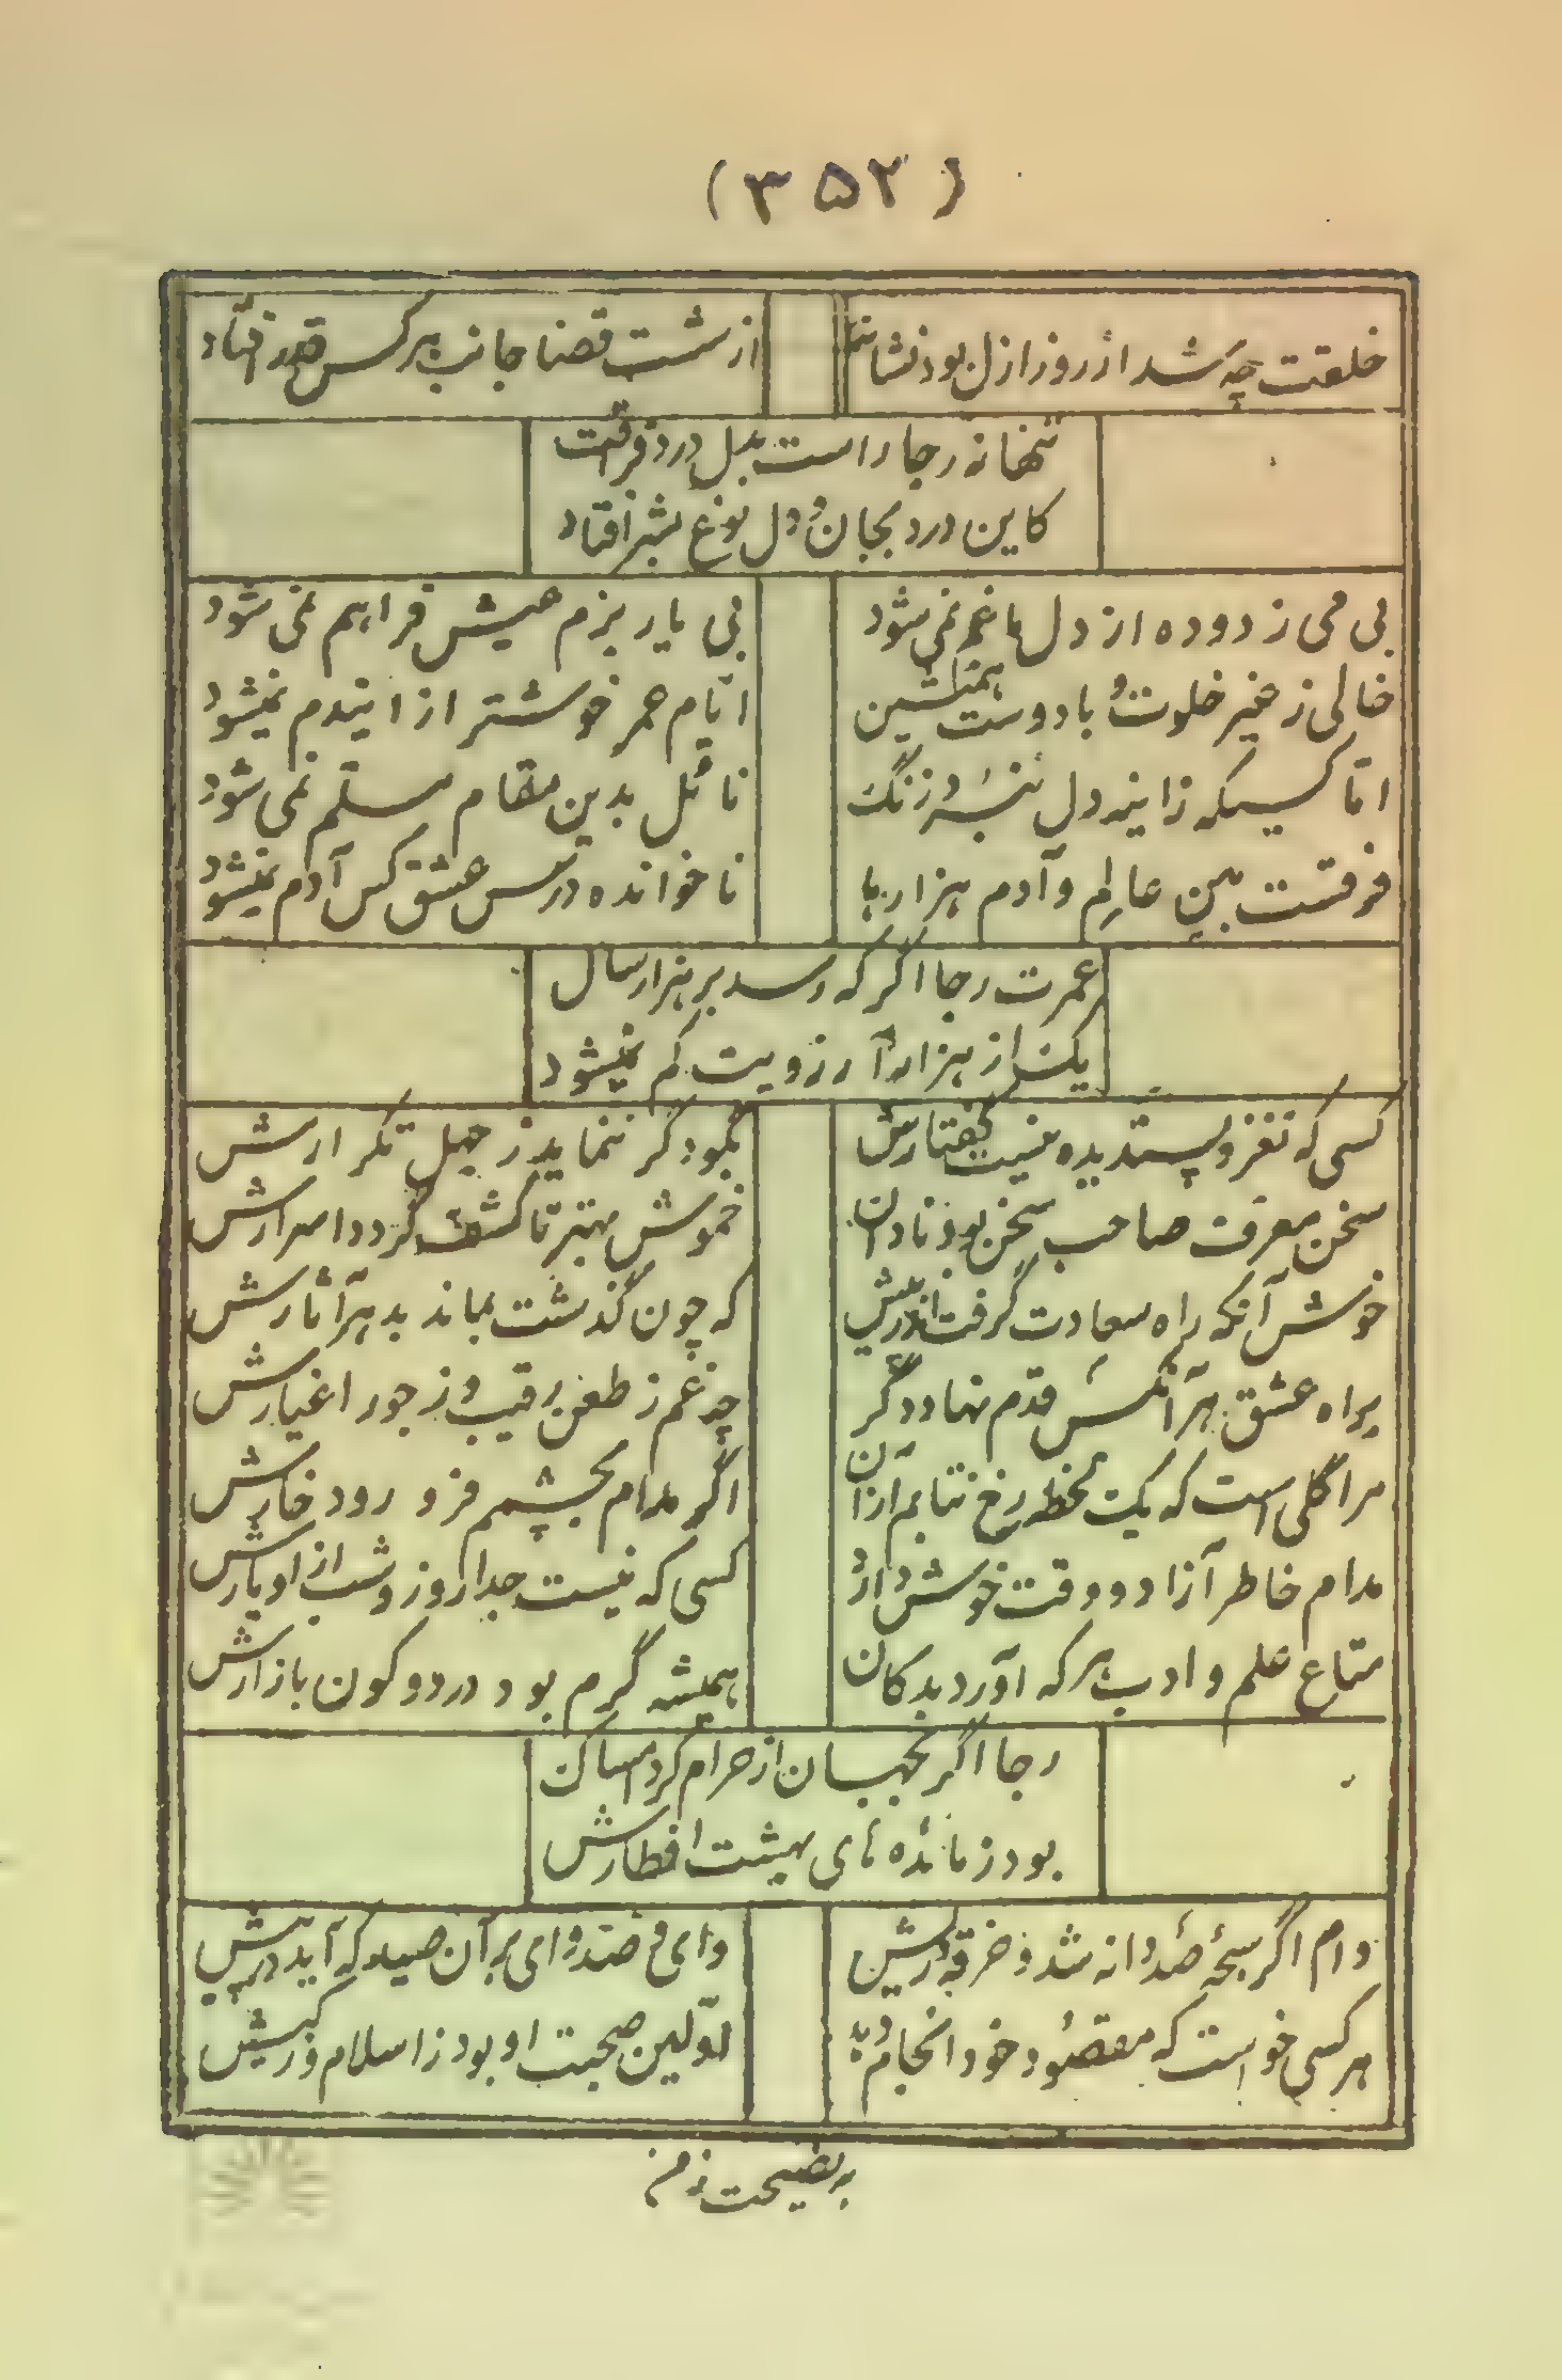 (۳۵۲)
خلقت چه شد از روز ازل بود نشانها
از شست قضا جانب هرکس قدر افتاد
تنها نه رجا راست بدل درد فراقت
کاین درد بجان و دل نوع بشر افتاد
بی می زدوده از دل ما غم نمی شود
بی یار بزم عیش فراهم نمی شود
خالی ز غیر خلوت و با دوست همنشین
ایام عمر خوشتر از ایندم نمیشود
اما کسیکه زاینه دل زنگ
نائل بدین مقام مسلم نمی شود
فرقست بین عالم و آدم هزارها
ناخوانده درس عشق کس آدم نمیشود
عمرت رجا اگر که رسد بر هزار سال
یک از هزار آرزویت کم نمیشود
کسی که نغز و پسندیده نیست گفتارش
نکو دگر ننماید ز جهل تکرارش
سخن معرفت صاحب سخن بود نادان
خموش بهتر تا کشف نگردد اسرارش
خوش آنکه راه سعادت گرفت اندر پیش
که چون گذشت بماند بدهر آثارش
براه عشق هر آنکس قدم نهاد دگر
چه غم ز طعن رقیب و ز جور اغیارش
مرا گلی است که یک لحظه رخ نتابم از آن
اگر مدام بچشمم فرو رود خارش
مدام خاطر آزاد و وقت خوش دارد
کسی که نیست جدا روز و شب از او یارش
متاع علم و ادب هر که آورد بدکان
همیشه گرم بود در دو کون بازارش
رجا اگر بجهان از حرام کرد امساک
بود ز مائده های بهشت افطارش
دام اگر سبحه صد دانه شد و خرقه درش
وای و صد وای بر آن صید که آید برش
هر کسی خواست که مقصود خود انجام دهد
اولین صحبت او بود ز اسلام و ز کیش
به نصیحت ز من